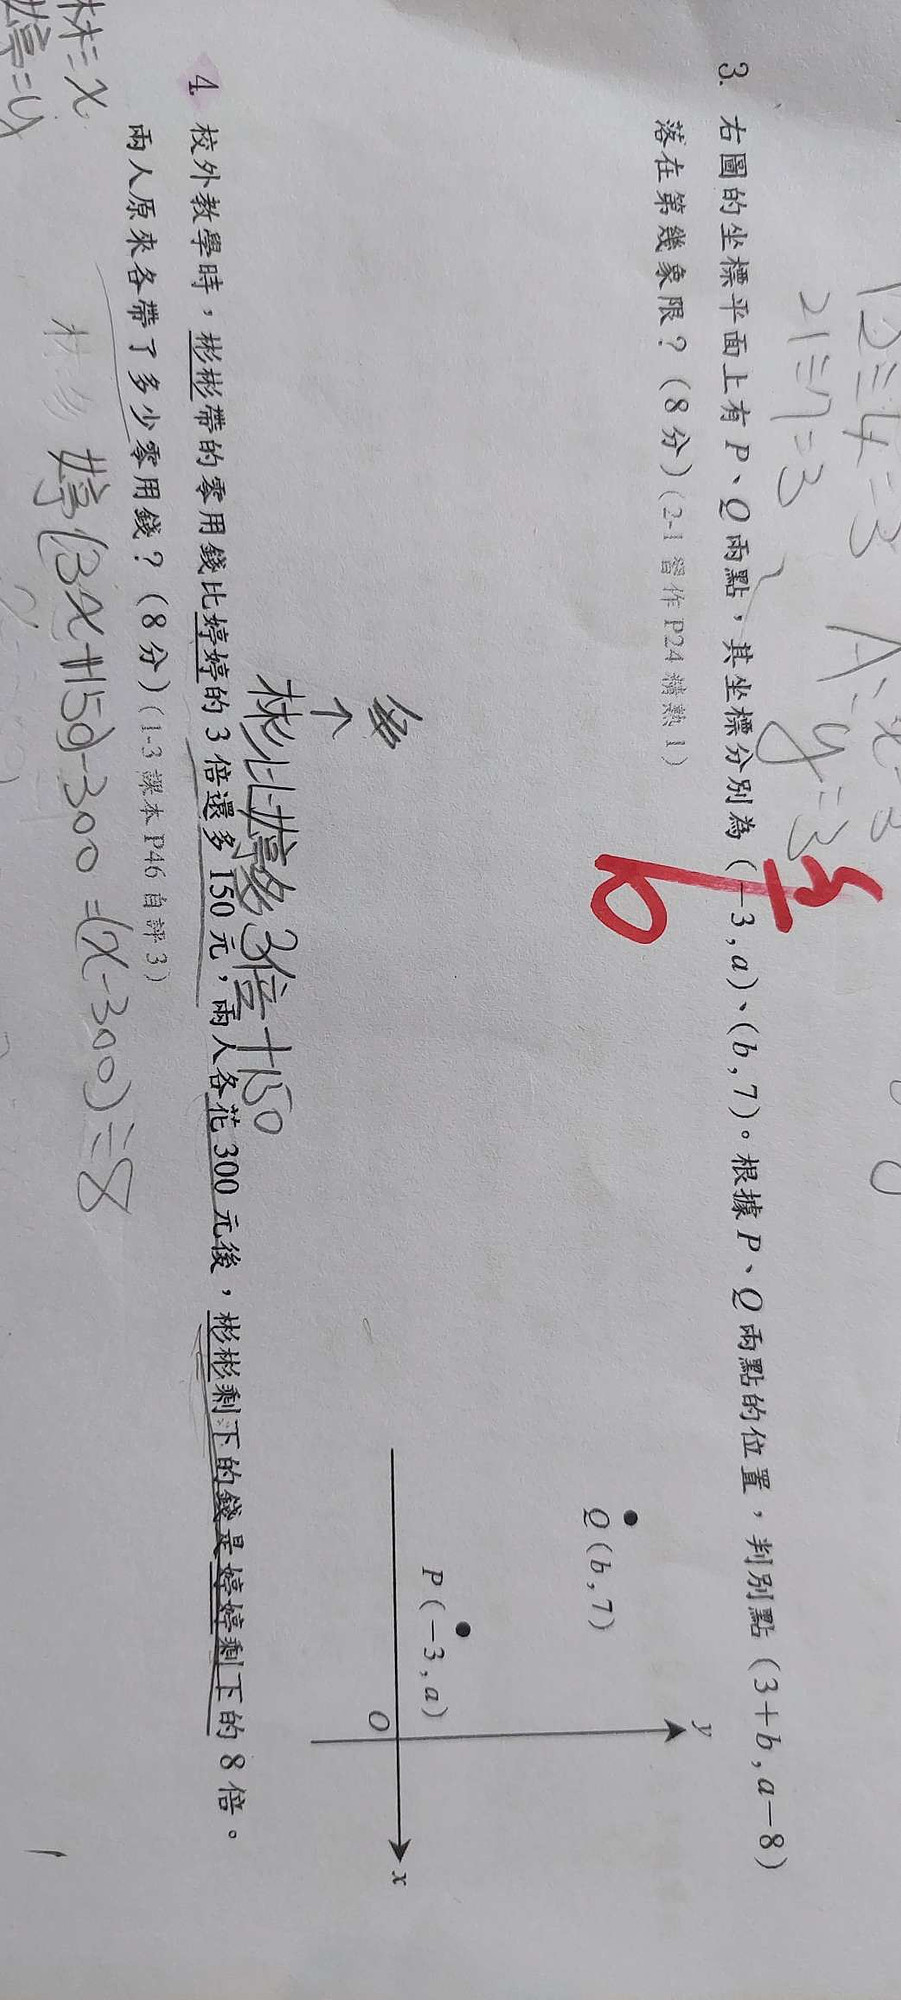 12÷4=3
21÷7=3
y=3
3. 右圖的坐標平面上有 P、Q 兩點，其坐標分別為 (−3, a)、(b, 7)。根據 P、Q 兩點的位置，判別點 (3+b, a−8)
落在第幾象限？(8 分) (2-1 習作 P24 精熟 1)
y
Q (b, 7)
P (−3, a)
O
x
彬比婷多3倍+150
4. 校外教學時，彬彬帶的零用錢比婷婷的 3 倍還多 150 元，兩人各花 300 元後，彬彬剩下的錢是婷婷剩下的 8 倍。
兩人原來各帶了多少零用錢？(8 分) (1-3 課本 P46 自評 3)
彬=x
婷=y
婷(3x+150)-300=(x-300)÷8